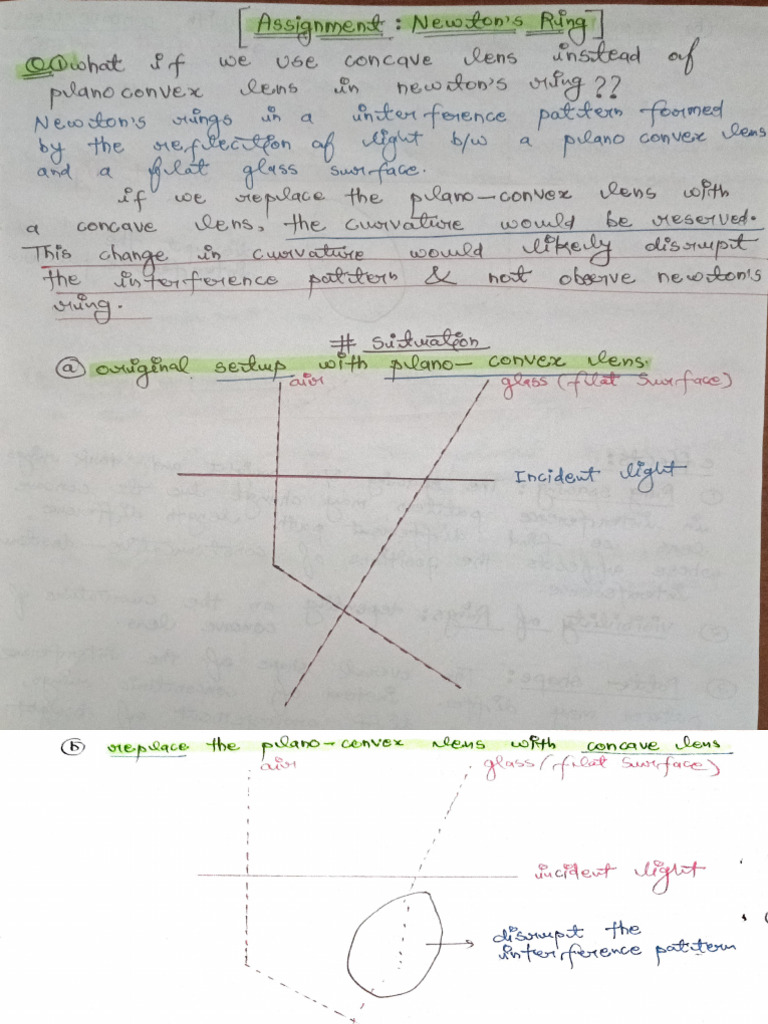 [Assignment : Newton's Ring]
Q.① what if we use concave lens instead of
planoconvex lens in newton's ring??
Newton's rings in a interference pattern formed
by the reflection of light b/w a plano convex lens
and a flat glass surface.
if we replace the plano-convex lens with
a concave lens, the curvature would be reserved.
This change in curvature would likely disrupt
the interference pattern & not observe newton's
ring.
# Situation
ⓐ original setup with plano-convex lens.
air glass (flat surface)
Incident light
ⓑ replace the plano-convex lens with concave lens
air glass (flat surface)
incident light
disrupt the
interference pattern